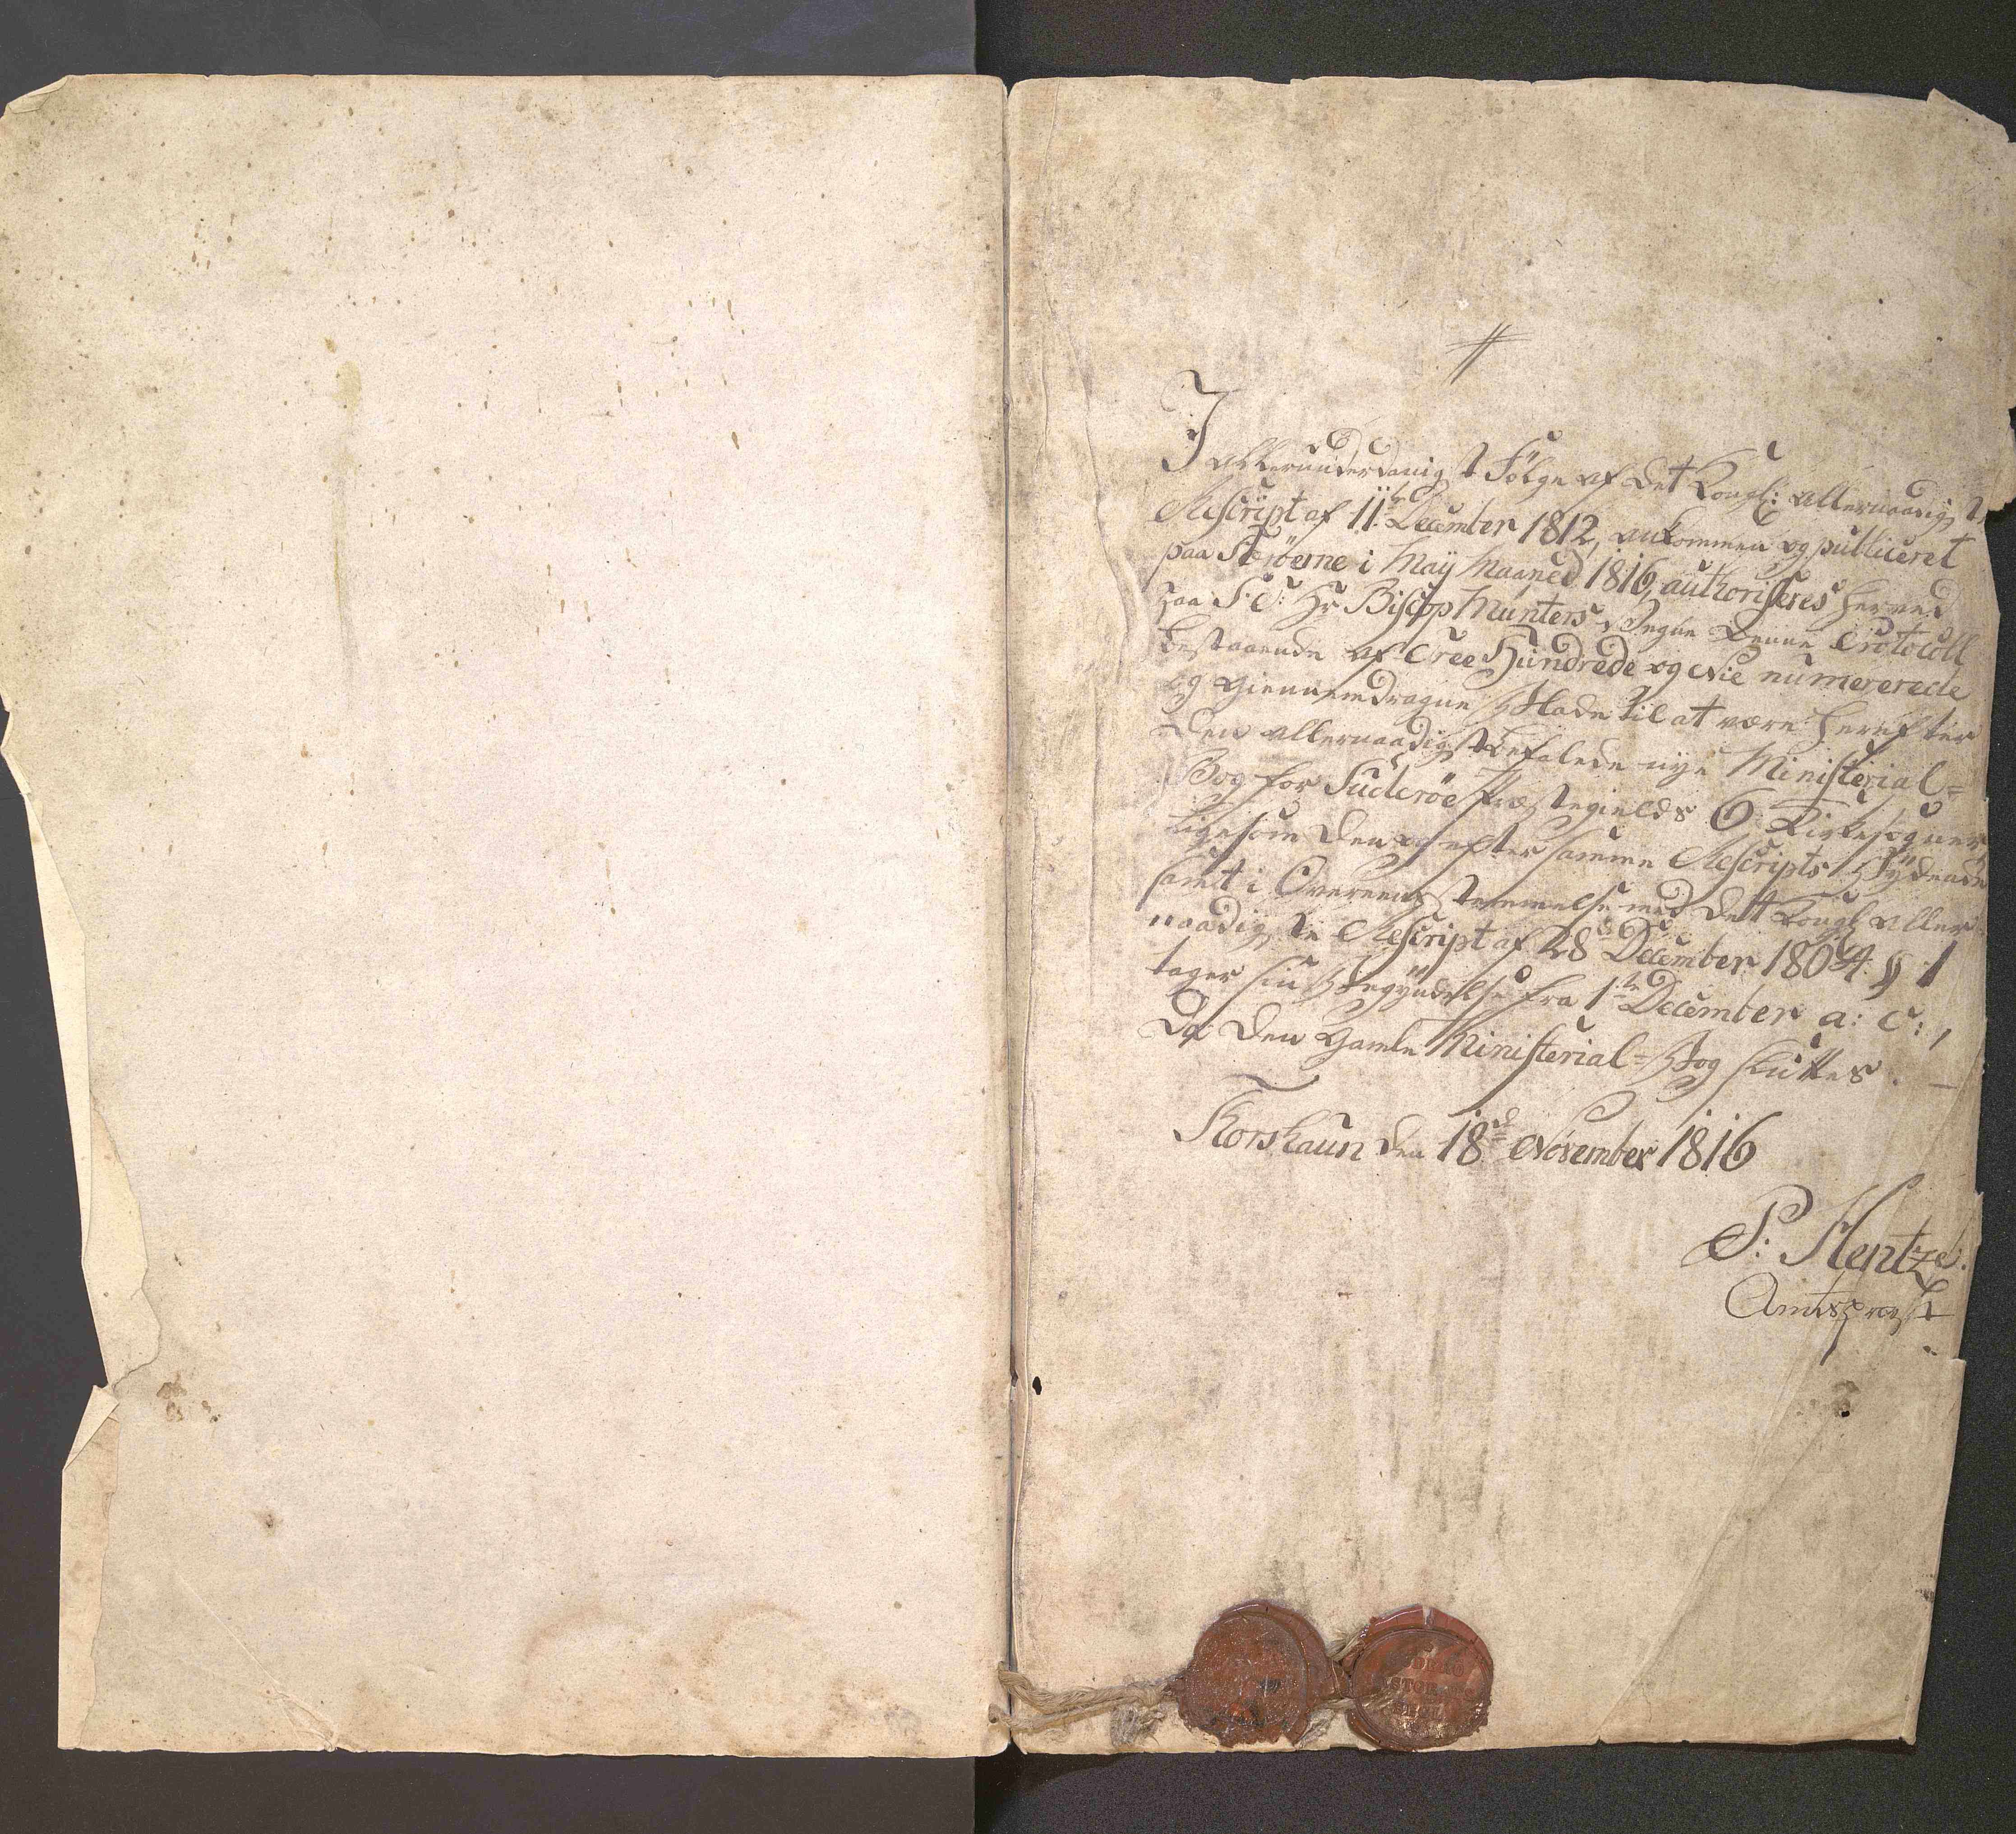 I allerunderdanigst Følge af det Kongl: allernaadigste
Rescript af 11te December 1812, ankommen og publiceret
paa Færöerne i Maÿ Maaned 1816, authoriseres herved
paa S: T: Hr Biscop Munters Vegne denne Protocoll
bestaaende af Tree Hundrede og Nie numererede
og giennemdragne Blade til at være herefter
den allernaadigst befalede nye Ministerial=
Bog for Suderöe Præstegields 6 Kirkesogner
ligesom den og efter samme Rescripts Bydende
samt i Overeensstemmelse med det Kongl aller
naadigste Rescript af 28de December 1804 § 1
tager sin Begyndelse fra 1te December a: c:,
da den gamle Ministerial=Bog sluttes. —
Thorshaun den 18d November 1816
P: Hentze.
Amtsprovst